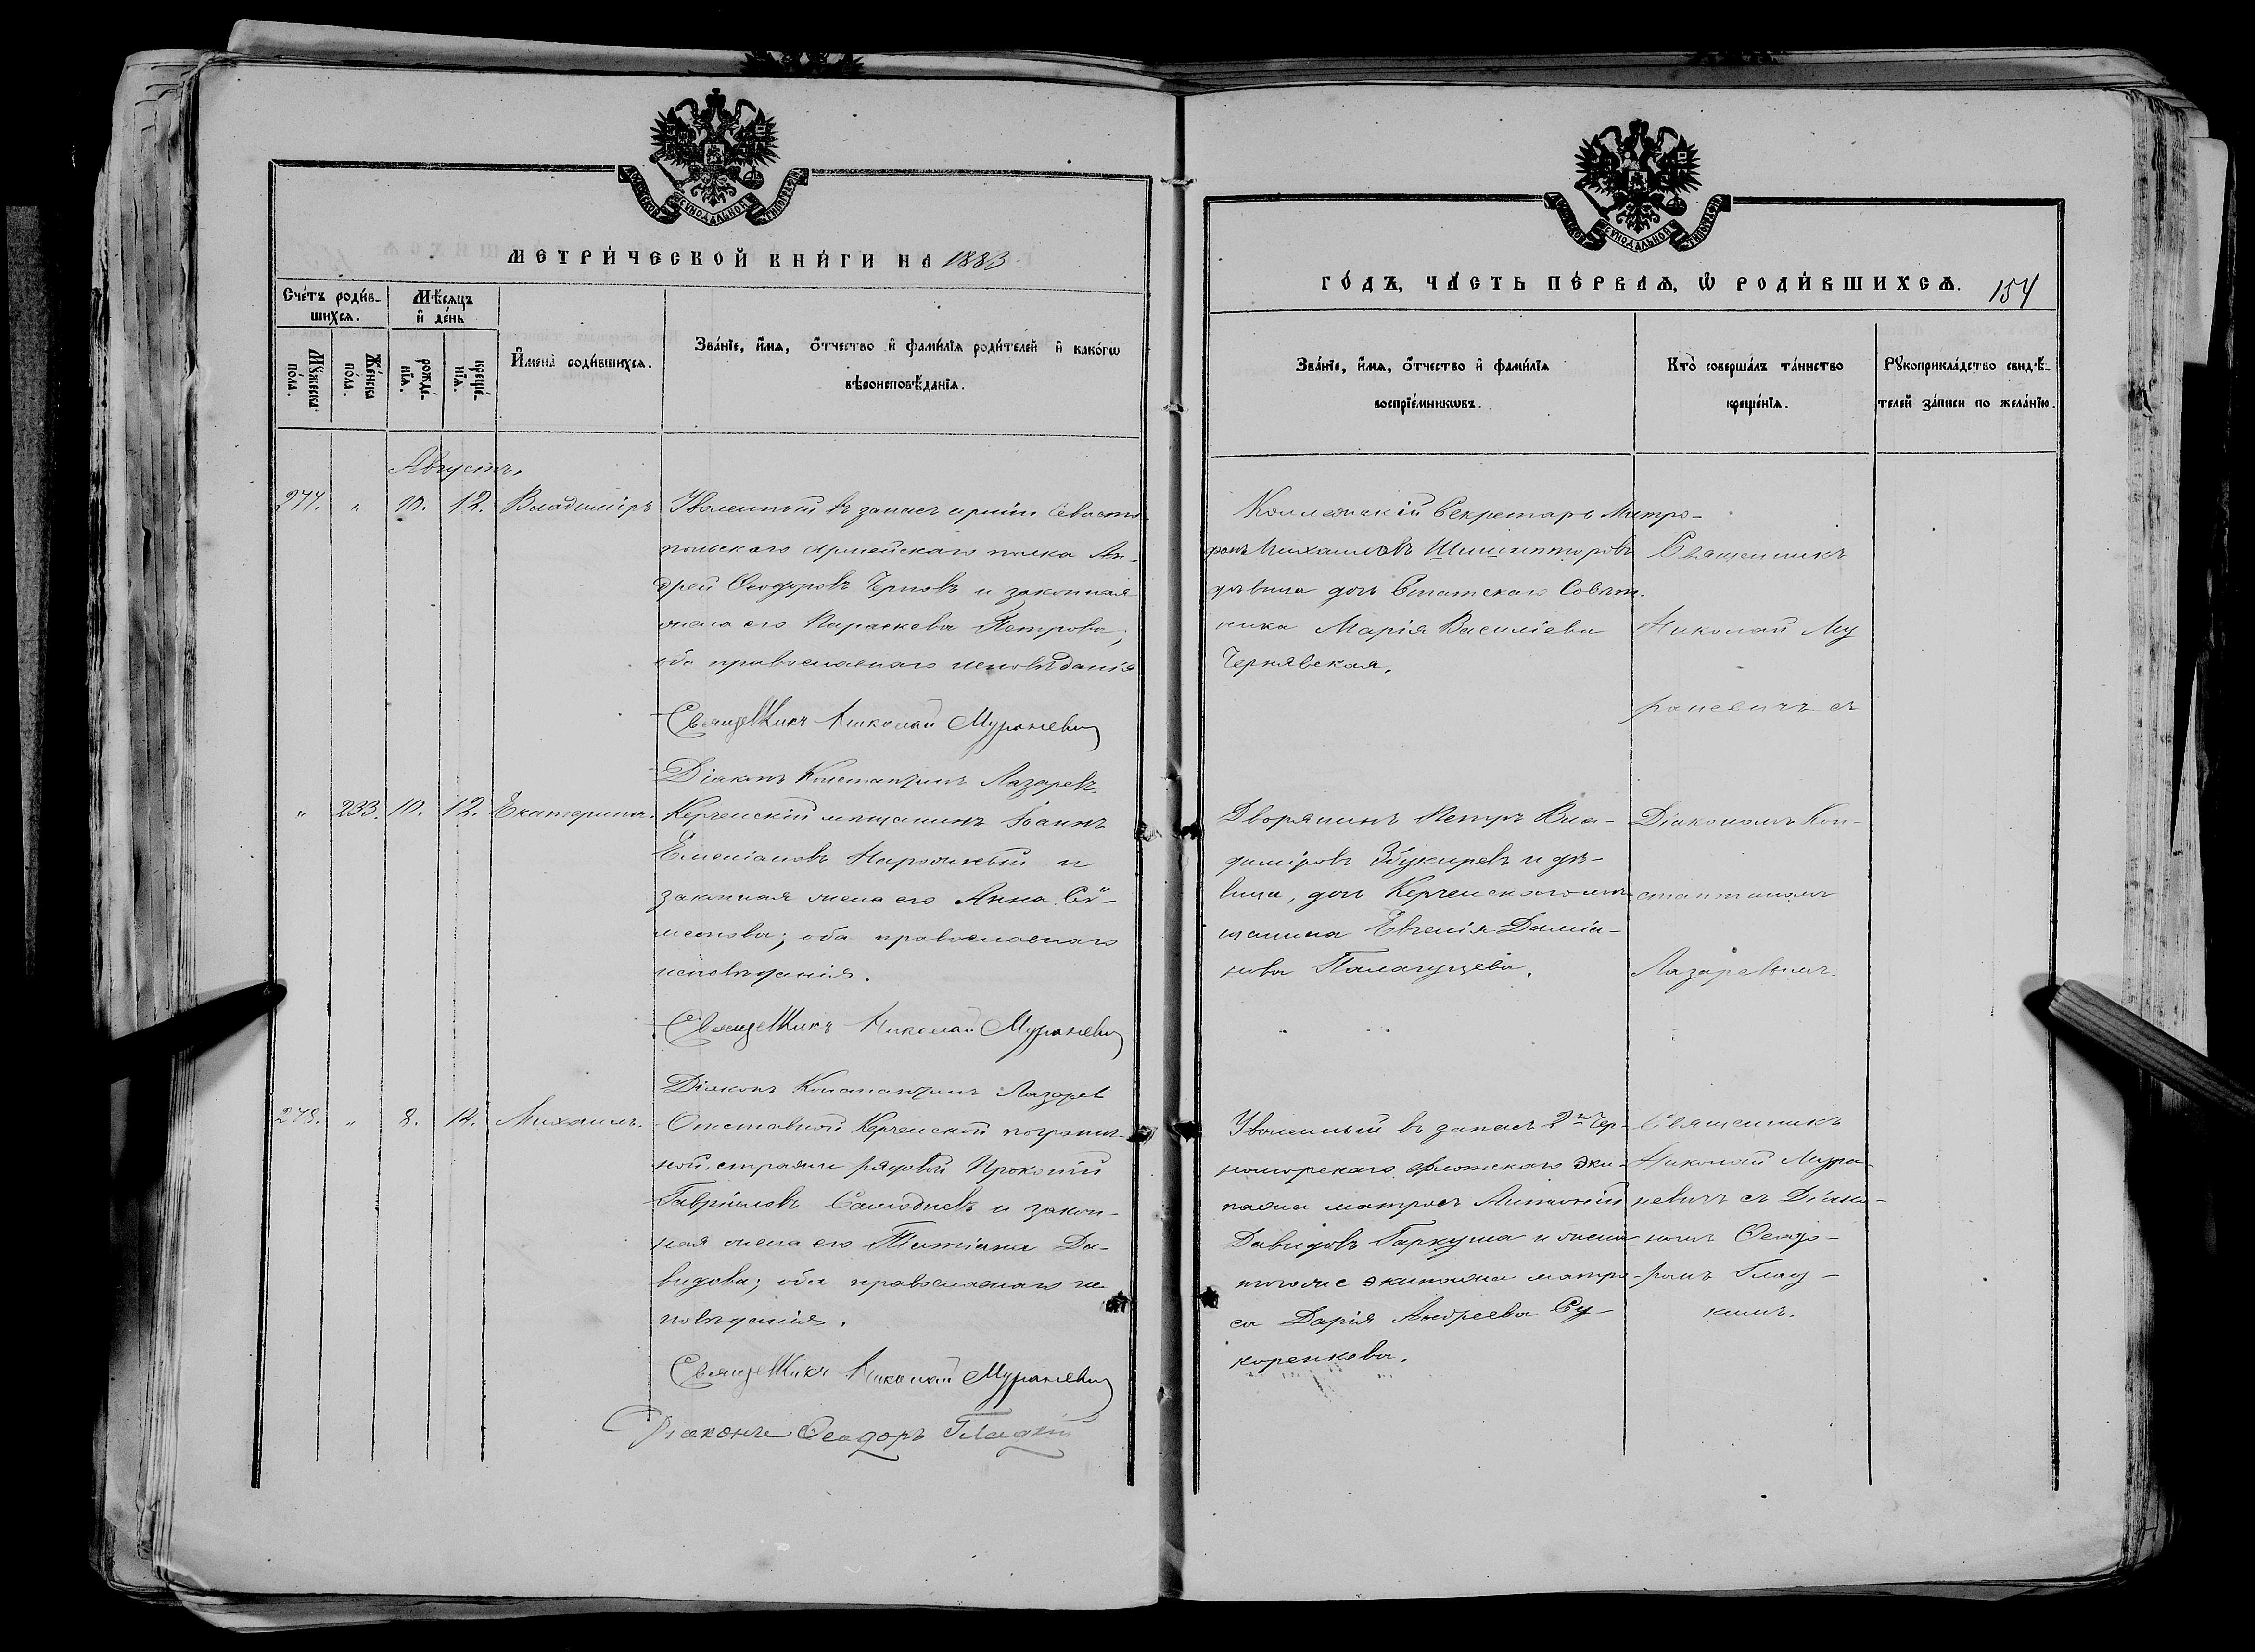 МЕТРИ́ЧЕСКОЙ КНИ́ГИ НА 1883
Сче́тъ роди́в-
шихсѧ.
Мѣ́сѧцъ
и҆ де́нь
Мꙋ́жеска
по́ла.
Же́нска
по́ла.
рожде́-
нїѧ.
креще́-
нїѧ.
И҆мена̀ роди́вшихсѧ.
Зва́нїе, и҆́мѧ, ѻ҆́тчество и҆ фами́лїѧ роди́телей и҆ како́гѡ
вѣроисповѣ́данїѧ.
Августъ,
277. " 10. 12. Владиміръ
Уволенный въ запасъ арміи Севасто-
польскаго Армейскаго полка Ан-
дрей Ѳеодоровъ Черновъ и законная
жена его Параскева Петрова;
оба православнаго исповѣданія
Священникъ Николай Мураневич
Діаконъ Константинъ Лазаревъ
" 233. 10. 12. Екатерина.
Керченскій мѣщанинъ Іоаннъ
Емеліановъ и
законная жена его Анна Сѵ-
меонова; оба православнаго
исповѣданія.
Священникъ Николай Мураневич
Діаконъ Константинъ Лазарев
278. " 8. 14. Михаилъ.
Отставной Керченской погранич-
ной стражи рядовой Прокопій
Гавріиловъ и закон-
ная жена его Татіана Да-
видова; оба православнаго ис
повѣданія.
Священникъ Николай Мураневич
Діаконъ Ѳеодоръ Гладкій
ГО́ДЪ, ЧА́СТЬ ПЕ́РВАѦ, Ѡ҆ РОДИ́ВШИХСѦ. 154
Зва́нїе, и҆́мѧ, ѻ҆́тчество и҆ фами́лїѧ
воспрїе́мникѡвъ.
Кто̀ соверша́лъ та́инство
креще́нїѧ.
Рꙋкоприкла́дство свидѣ́-
телей за́писи по жела́нїю.
Коллежскій Секретарь Митро-
фанъ Михаиловъ
дѣвица дочь Статскаго Совѣт-
ника Марія Василіева
Чернявская.
Священникъ
Николай Му
раневичъ съ
Дворянинъ Петръ Вла-
диміровъ и дѣ-
вица, дочь Керченскаго мѣ-
щанина Евгенія Даміа-
нова
Діакономъ Кон-
стантиномъ
Лазаревымъ.
Уволенный въ запасъ 2го Чер-
номорскаго флотскаго эки-
пажа матросъ Антоній
Давидовъ Гаркуша и жена
тогоже экипажа матро-
са Дарія Андреева Су-
коренкова.
Священникъ
Николай Мура-
невичъ съ Діако-
номъ Ѳеодо-
ромъ Глад-
кимъ.